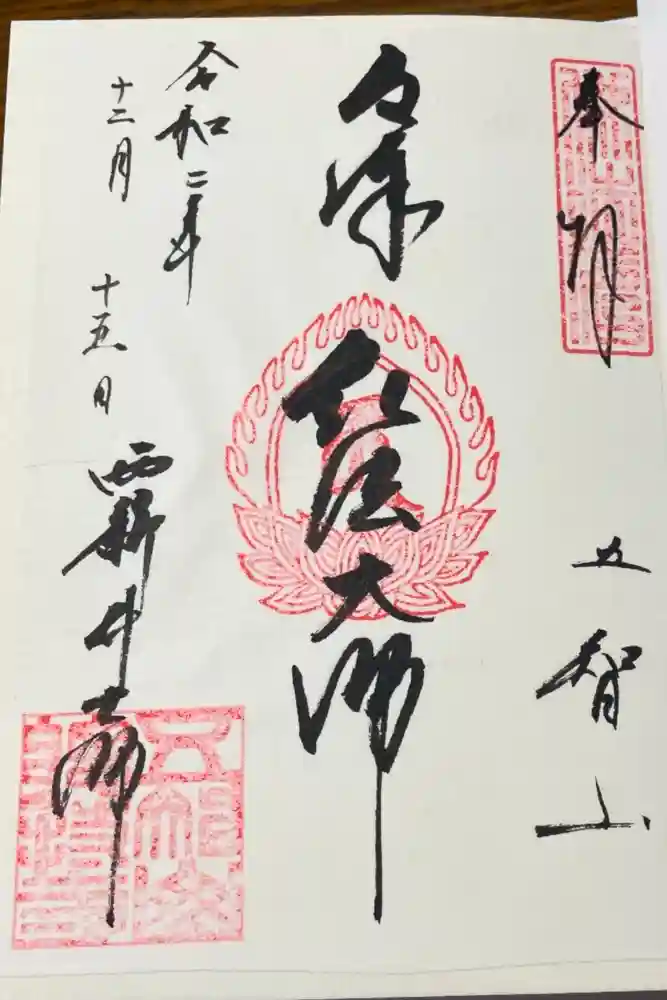 奉拝
五智山
厄除
弘法大師
令和二年
十二月
十五日
西新井大師